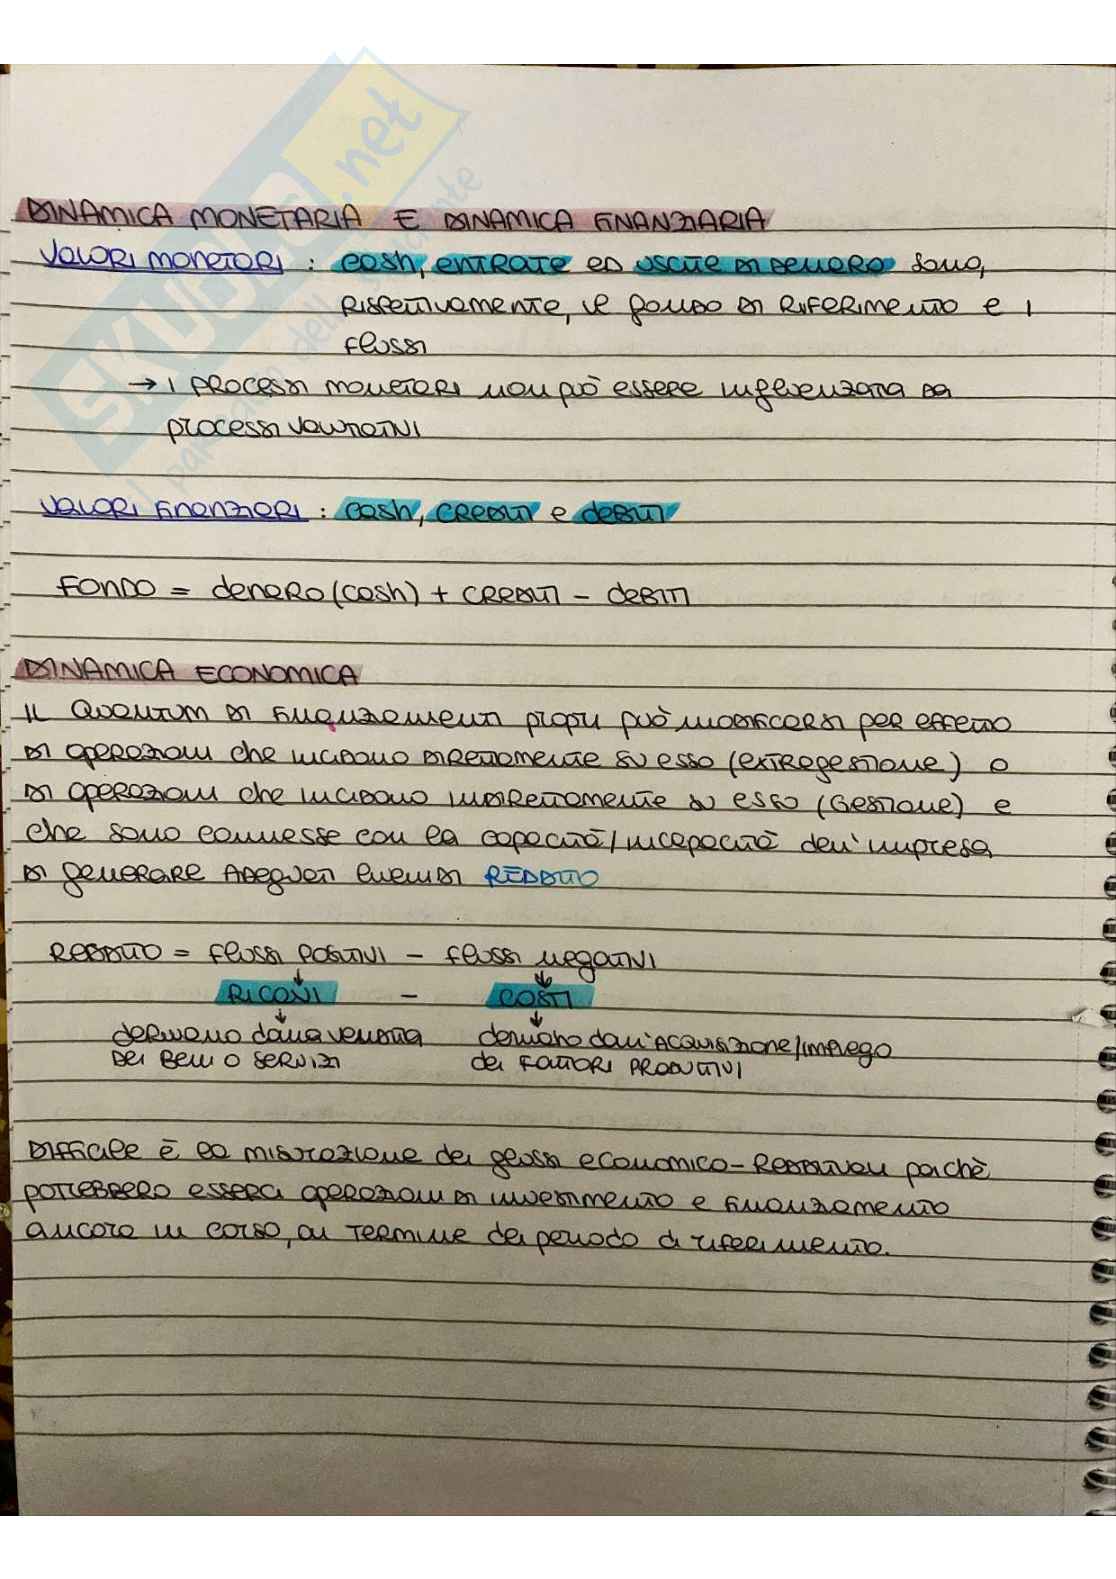 DINAMICA MONETARIA E DINAMICA FINANZIARIA
VALORI MONETARI : cash, ENTRATE ED USCITE DI DENARO sono,
RISPETTIVAMENTE, il fondo DI RIFERIMENTO e i
flussi
→ I PROCESSI MONETARI non può essere influenzata DA
PROCESSI VALUTATIVI
VALORI FINANZIARI : cash, CREDITI e DEBITI
FONDO = denaro (cash) + CREDITI - DEBITI
DINAMICA ECONOMICA
IL QUANTUM DI FINANZIAMENTI propri può MODIFICARSI per effetto
DI operazioni che incidono DIRETTAMENTE SU esso (EXTRAGESTIONE) o
DI operazioni che incidono INDIRETTAMENTE su esso (GESTIONE) e
che sono connesse con la capacità/incapacità dell'impresa
DI generare ADEGUATI livelli DI REDDITO
REDDITO = flussi POSITIVI - flussi negativi
RICAVI - COSTI
derivano dalla vendita derivano dall'ACQUISIZIONE/IMPIEGO
DEI BENI O SERVIZI dei FATTORI PRODUTTIVI
DIFFICILE È la misurazione dei flussi economico-REDDITUALI poichè
POTREBBERO esserci operazioni DI investimento e finanziamento
ancora in corso, al TERMINE del periodo di riferimento.
SKUOLA.net
il paradiso dello studente